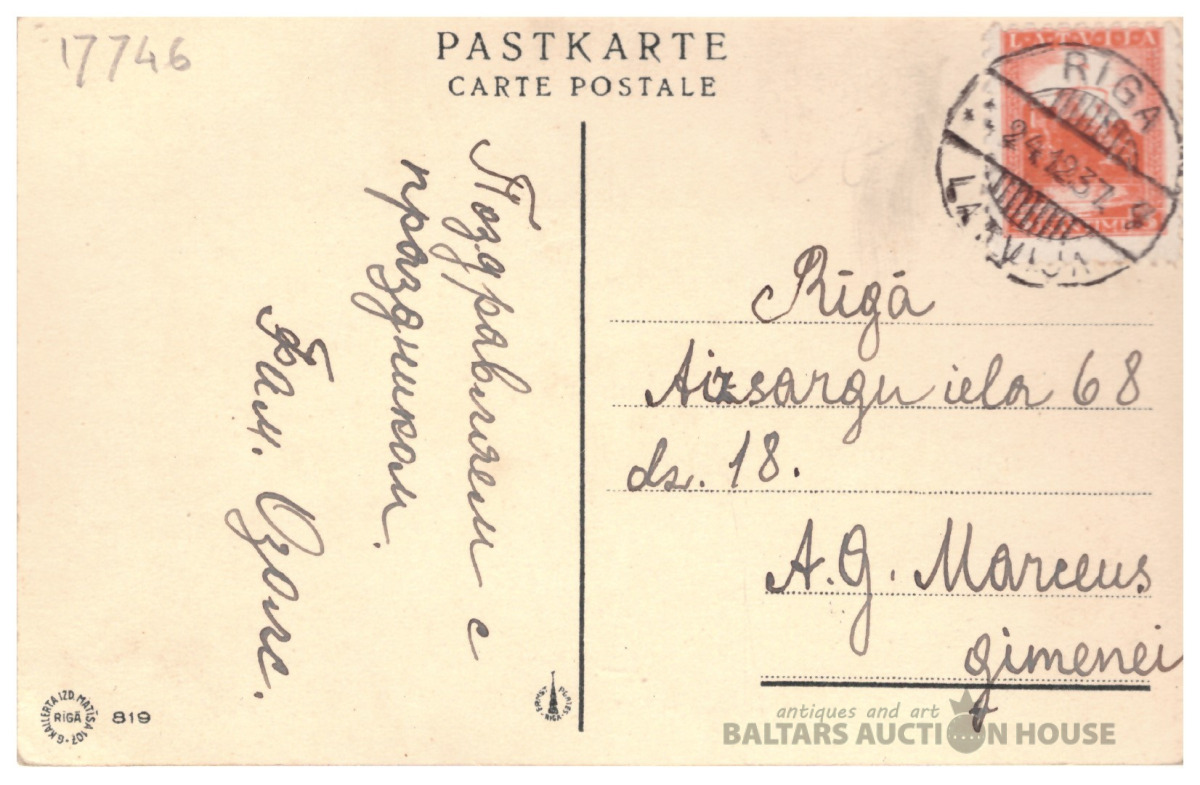 17746
PASTKARTE
CARTE POSTALE
LATVIJA
RIGA
24.12.37.
LATVIJA
Поздравляем с
праздником.
Фам. Озолс.
Rīgā
Aizsargu iela 68
dz. 18.
A. G. Marceus
ģimenei
G. KALLERTA IZD. MATĪSA 107
RĪGĀ
819
antiques and art
BALTARS AUCTION HOUSE